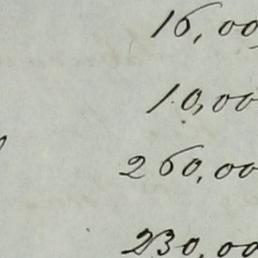 16,00
10,00
260,00
230,00